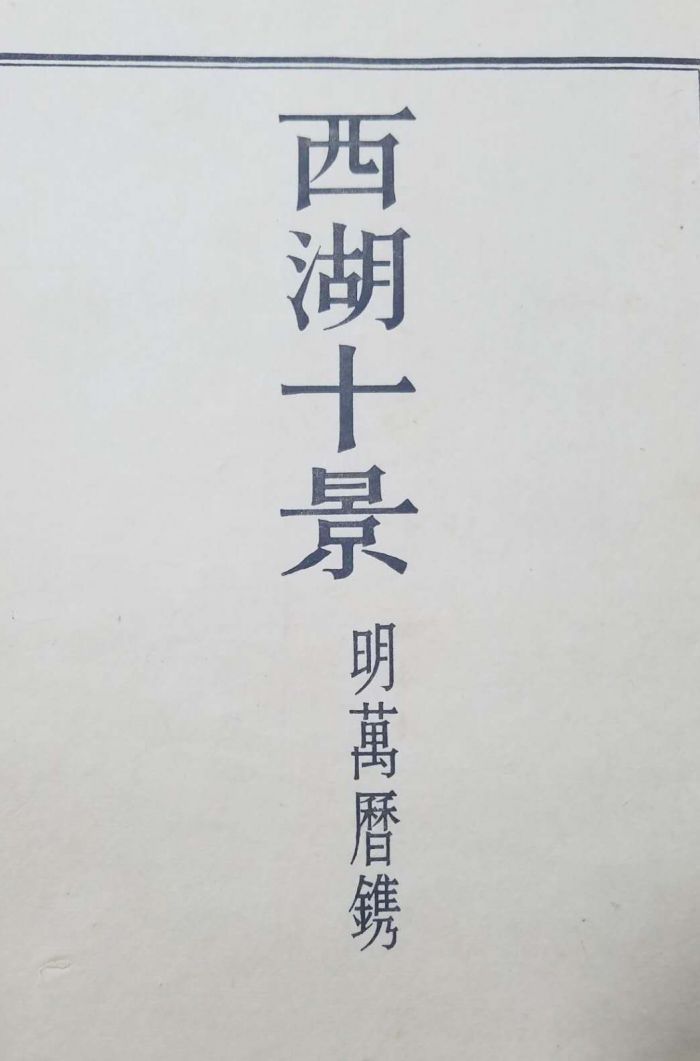 西湖十景
明萬曆鎸